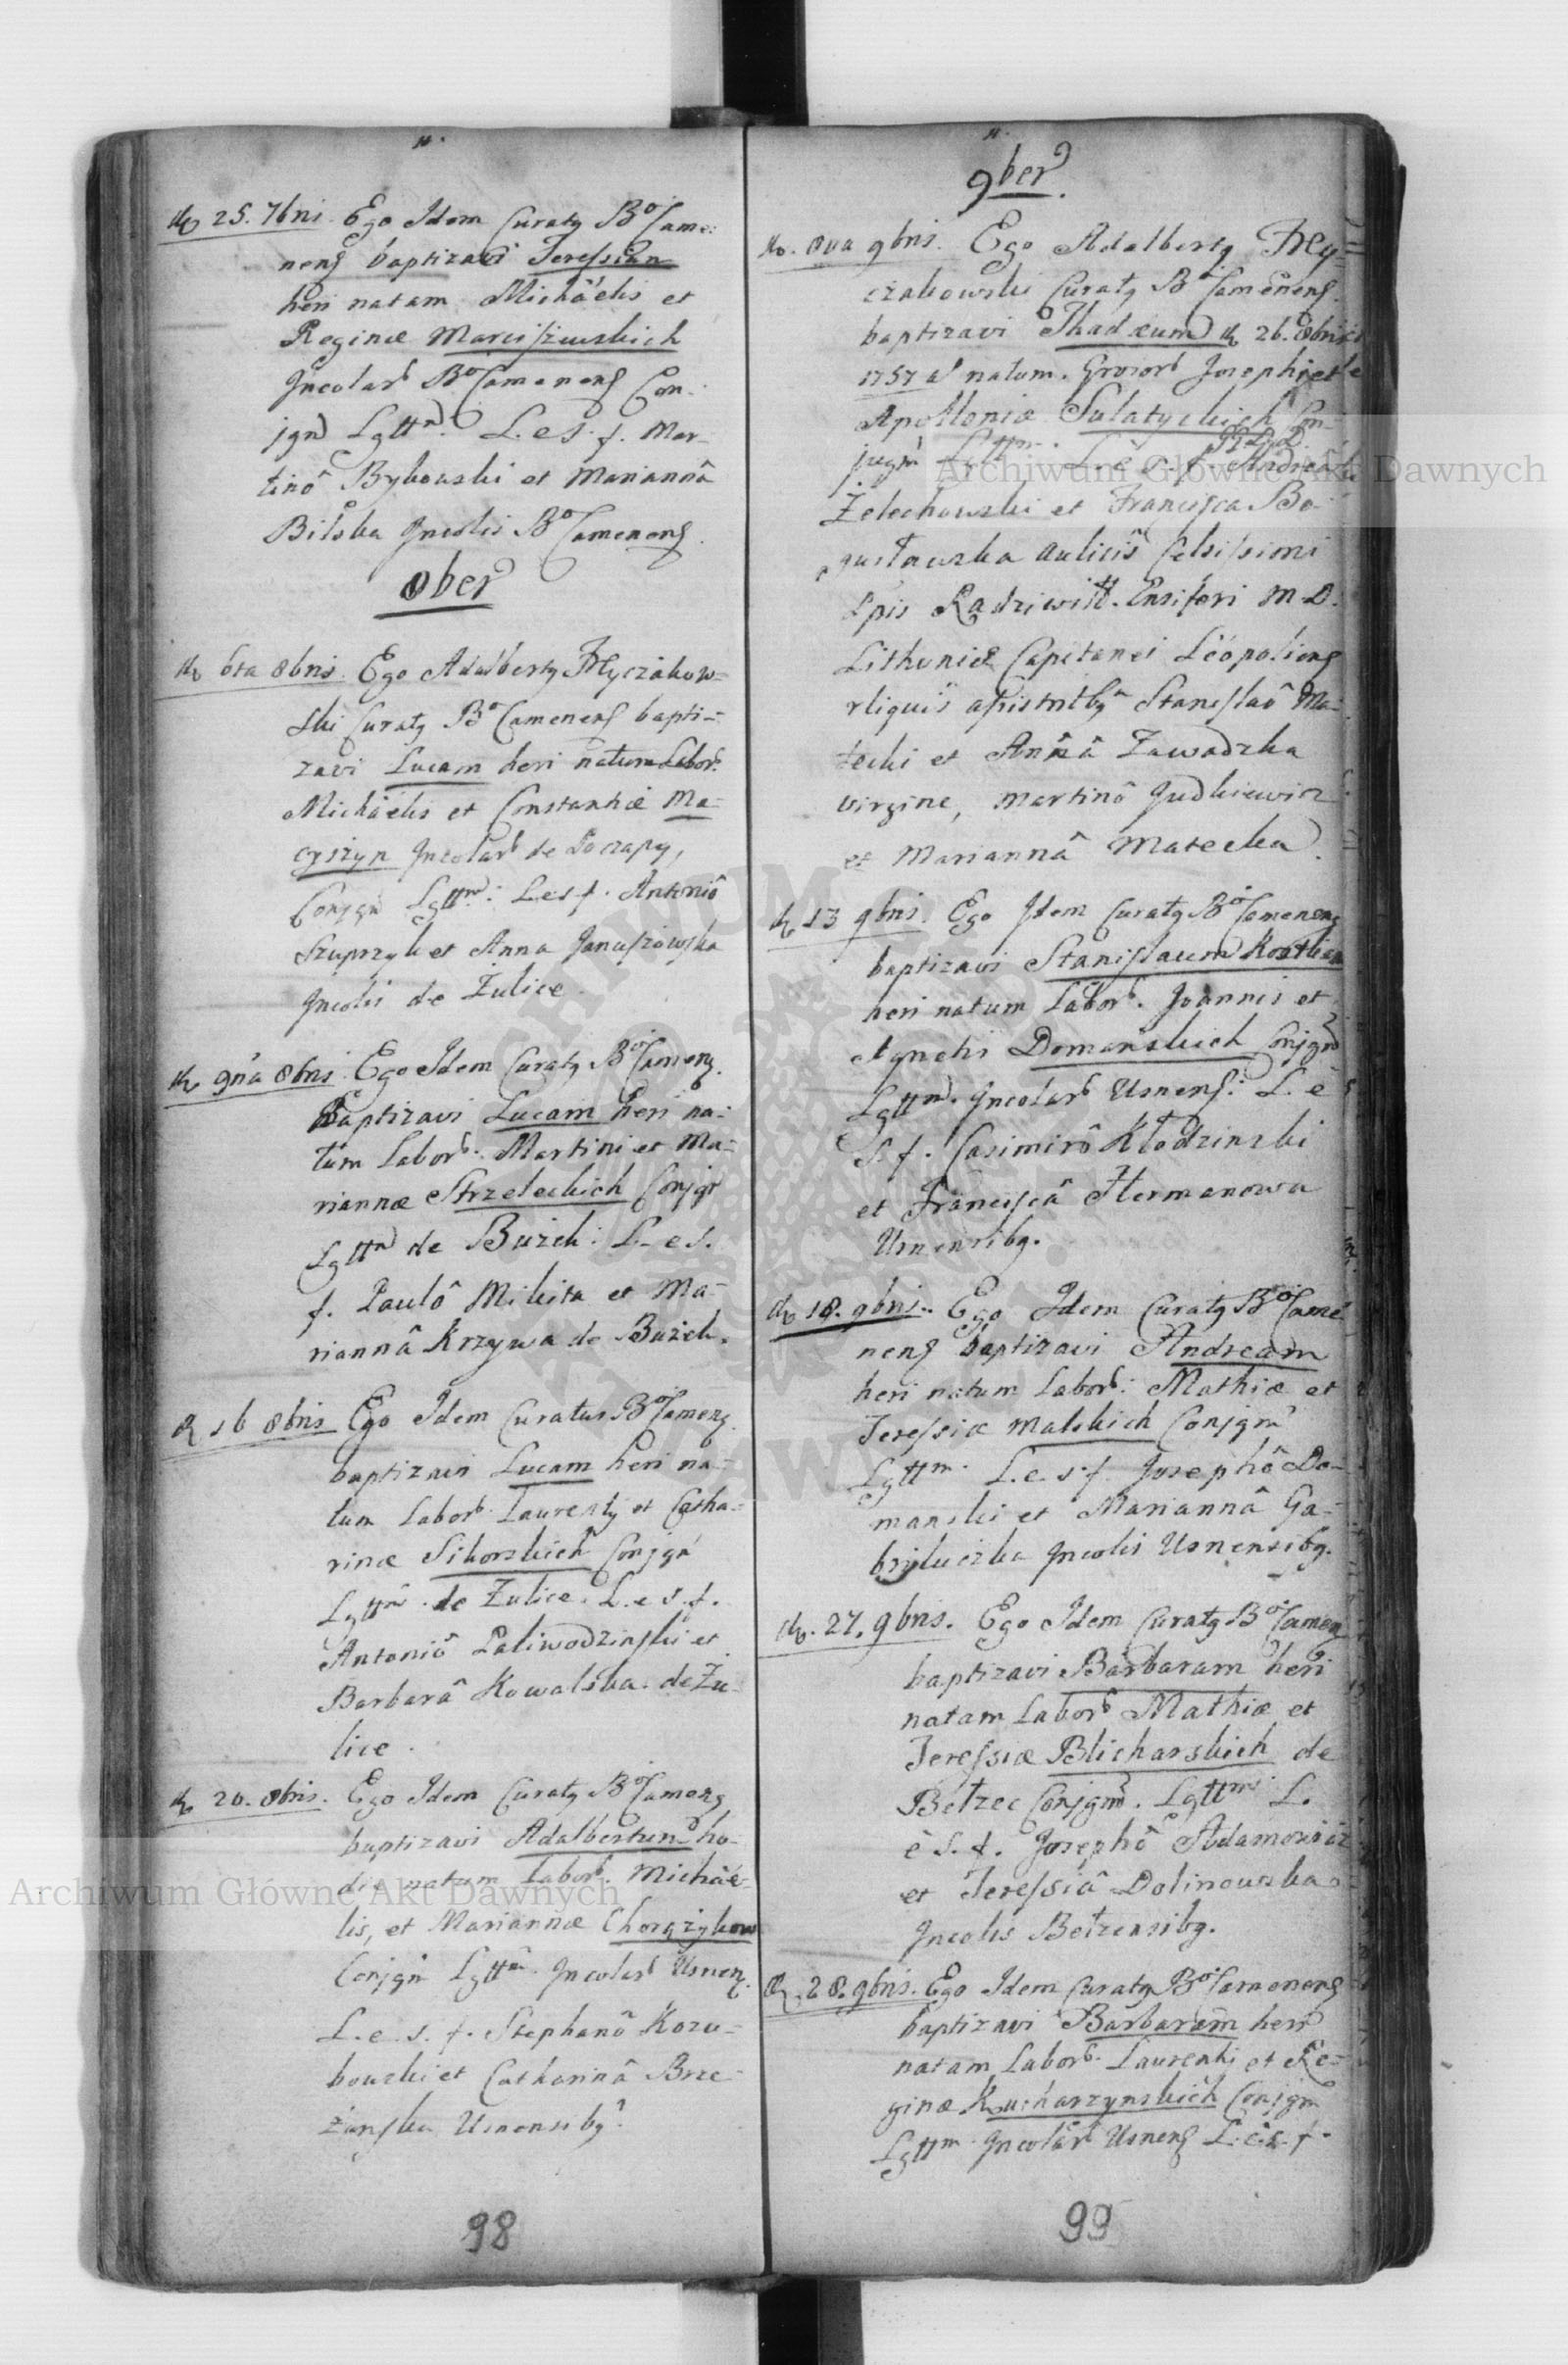 25. 7bris. Ego Idem Curatg B° Came:
neng baptizavi Teressiam
heri natam Michâelis et
Reginæ Marciszewskich
Incolarb B° Cameneng Con-
jgm Lgttm. L. e s. f. Mar-
tinô Bykowski et Mariannâ
Bilska Incolis B° Cameneng.
8ber
6ta 8bris. Ego Adalbertg Fryczakow-
ski Curatg B° Cameneng bapti-
zavi Lucam heri natum Labor.
Michâelis et Constantiæ Ma-
cyszyn Incolarb de Poczapy,
Conjgm Lgttm: L e s f. Antoniô
Szuprzyk et Anna Januszowska
Incolis de Żulice.
9na 8bris. Ego Idem Curatg B° Cameng.
Baptizavi Lucam heri na-
tum Laborb. Martini et Ma-
riannæ Strzeleckich Conjgm
Lgttm de Bużek: L. e s.
f. Paulô Mikita et Ma-
riannâ Krzywa de Bużek.
16 8bris Ego Idem Curatus B° Cameng.
baptizavi Lucam heri na-
tum Laborb. Laurenty et Catha-
rinæ Sikorskich Conjgm
Lgttm. de Żulice. L. e s. f.
Antoniô Paliwodzinski et
Barbarâ Kowalska. de Żu-
lice.
20. 8bris. Ego Idem Curatg B° Cameng
baptizavi Adalbertum ho-
die natum Laborb. Michâe-
lis, et Mariannæ Chorążykow
Conjgm Lgttm. Incolarb Usneng.
L. e. s. f. Stephanô Kozu-
bowski et Catharinâ Brze-
żanska Usnensibg.
98
9ber.
8va 9bris. Ego Adalbertg Fry-
czakowski Curatg B° Cameneng.
baptizavi Thadæum 26. 8bris
1757 natum. Grosorb Josephi et
Apolloniæ Sulatyckich Con-
jugm Lgttm. L. e s. f. Andreâ
Żelechowski et Francisca Bo-
gusławska Aulicis Celsissimi
Pis Radziwiłł. Ensiferi M. D.
Lithuniæ Capitanei Léopolieng
rliquis assisttbg Stanislaô Ma-
tecki et Annâ Zawadzka
virgine, Martinô Judkiewicz
et Mariannâ Matecka.
13 9bris. Ego Idem Curatg B° Cameneng
baptizavi Stanislaum Kostkam
heri natum Laborb. Joannis et
Agnetis Domanskich Conjgm
Lgttm. Incolarb Usneng: L. e
s. f. Casimirô Kłodzinski
et Franciscâ Hermanowa
Usnensibg.
18. 9bris. Ego Idem Curatg B° Came
neng baptizavi Andream
heri natum Laborb: Mathiæ et
Teressiæ Malskich Conjgm
Lgttm. L. e. s. f. Josephô Do-
manski et Mariannâ Ga-
bryluczka Incolis Usnensibg.
27. 9bris. Ego Idem Curatg B° Cameng
baptizavi Barbaram heri
natam Laborb Mathiæ et
Teressiæ Blicharskich de
Bełzec Conjgm. Lgttm L.
e s. f. Josephô Adamowicz
et Teressiâ Dolinowska
Incolis Bełzensibg.
28. 9bris. Ego Idem Curatg B° Cameneng
baptizavi Barbaram heri
natam Laborb. Laurenti et Re-
ginæ Kucharzynskich Conjgm
Lgttm. Incolarb Usneng L. e. s. f.
99
Archiwum Główne Akt Dawnych
Archiwum Główne Akt Dawnych